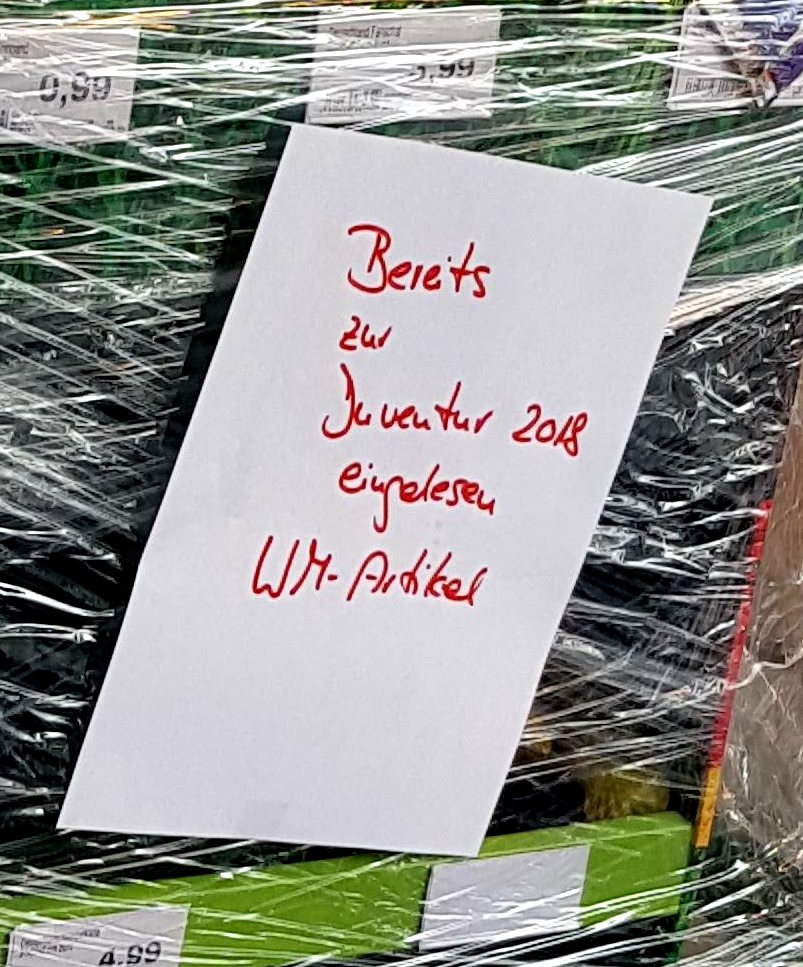 0,99
,99
Bereits
zur
Inventur 2018
eingelesen
WM-Artikel
4.99